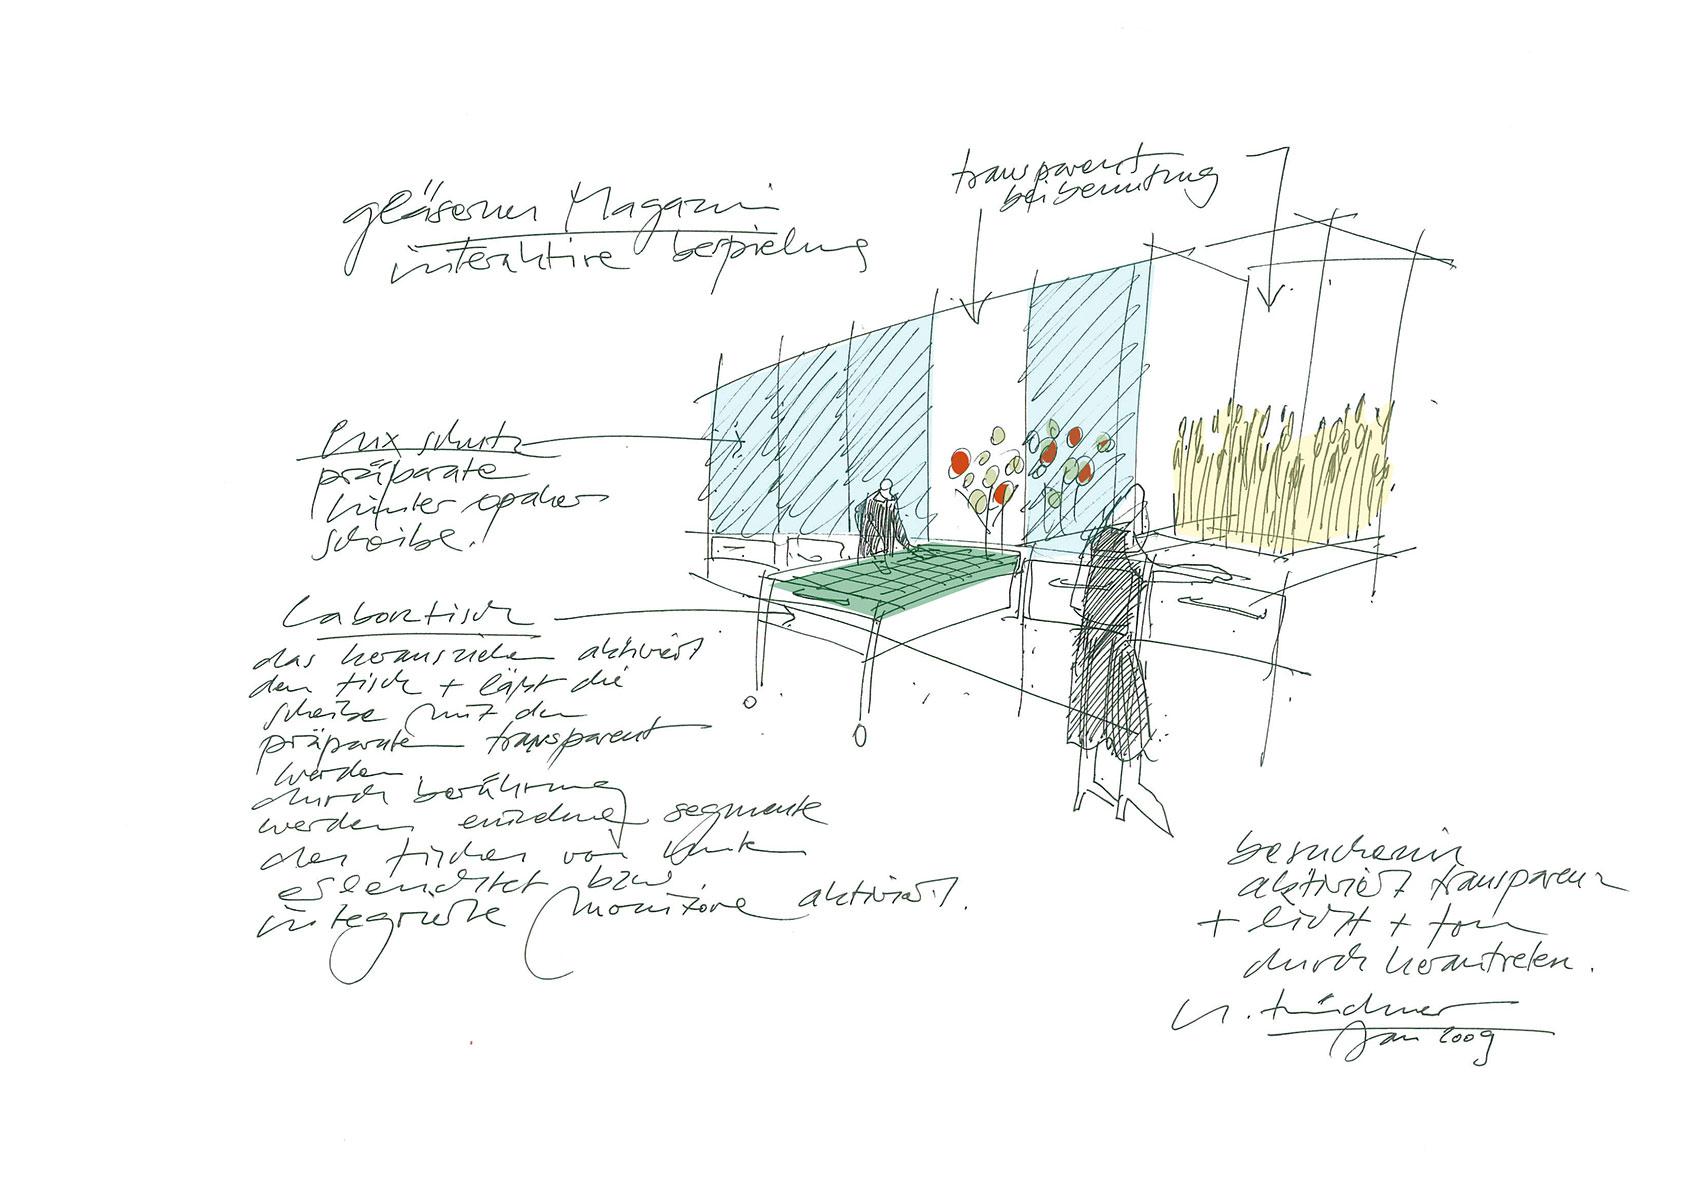 gläsernes Magazin
interaktive bespielung
transparent
bei benutzung
lux schutz
präparate
hinter opaker
scheibe.
Labortisch
das herausziehen aktiviert
den tisch + läßt die
scheibe mit den
präparaten transparent
werden
durch berührung
werden einzelne segmente
des tisches von unten
erleuchtet bzw.
integrierte monitore aktiviert.
besucherin
aktiviert transparenz
+ licht + ton
durch herantreten.
Jan 2009